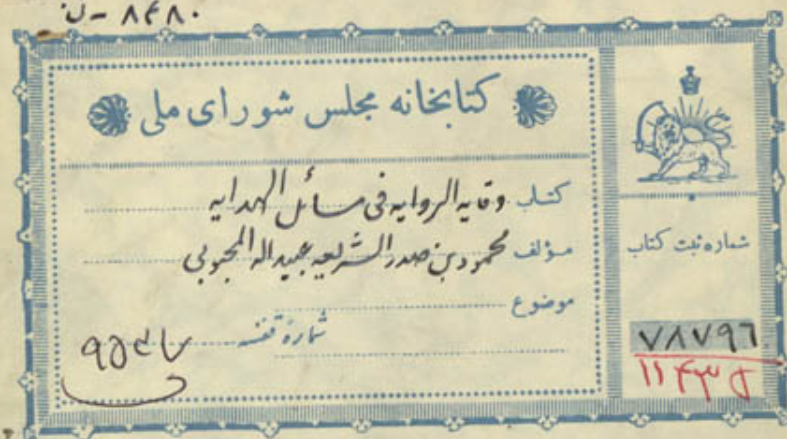 ۸۴۸۰ - ن
کتابخانه مجلس شورای ملی
کتاب وقایه الروایه فی مسائل الهدایه
مؤلف محمود بن صدر الشریعه عبیداله المحبوبی
موضوع
شماره قفسه
شماره ثبت کتاب
۷۸۷۹۶